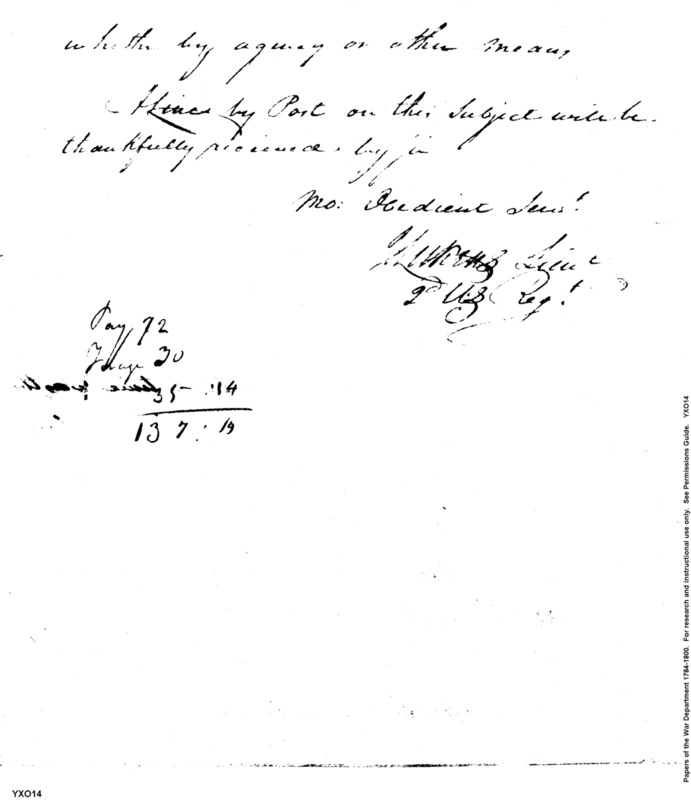 whether by agency or other means
A Line by Post on this Subject will be
thankfully received by Yr
Mo: Obedient Servt
Lieut
2d US Regt
Pay 72
Forage 30
35 : 14
137 : 14
Papers of the War Department 1784-1800. For research and instructional use only. See Permissions Guide. YXO14
YXO14